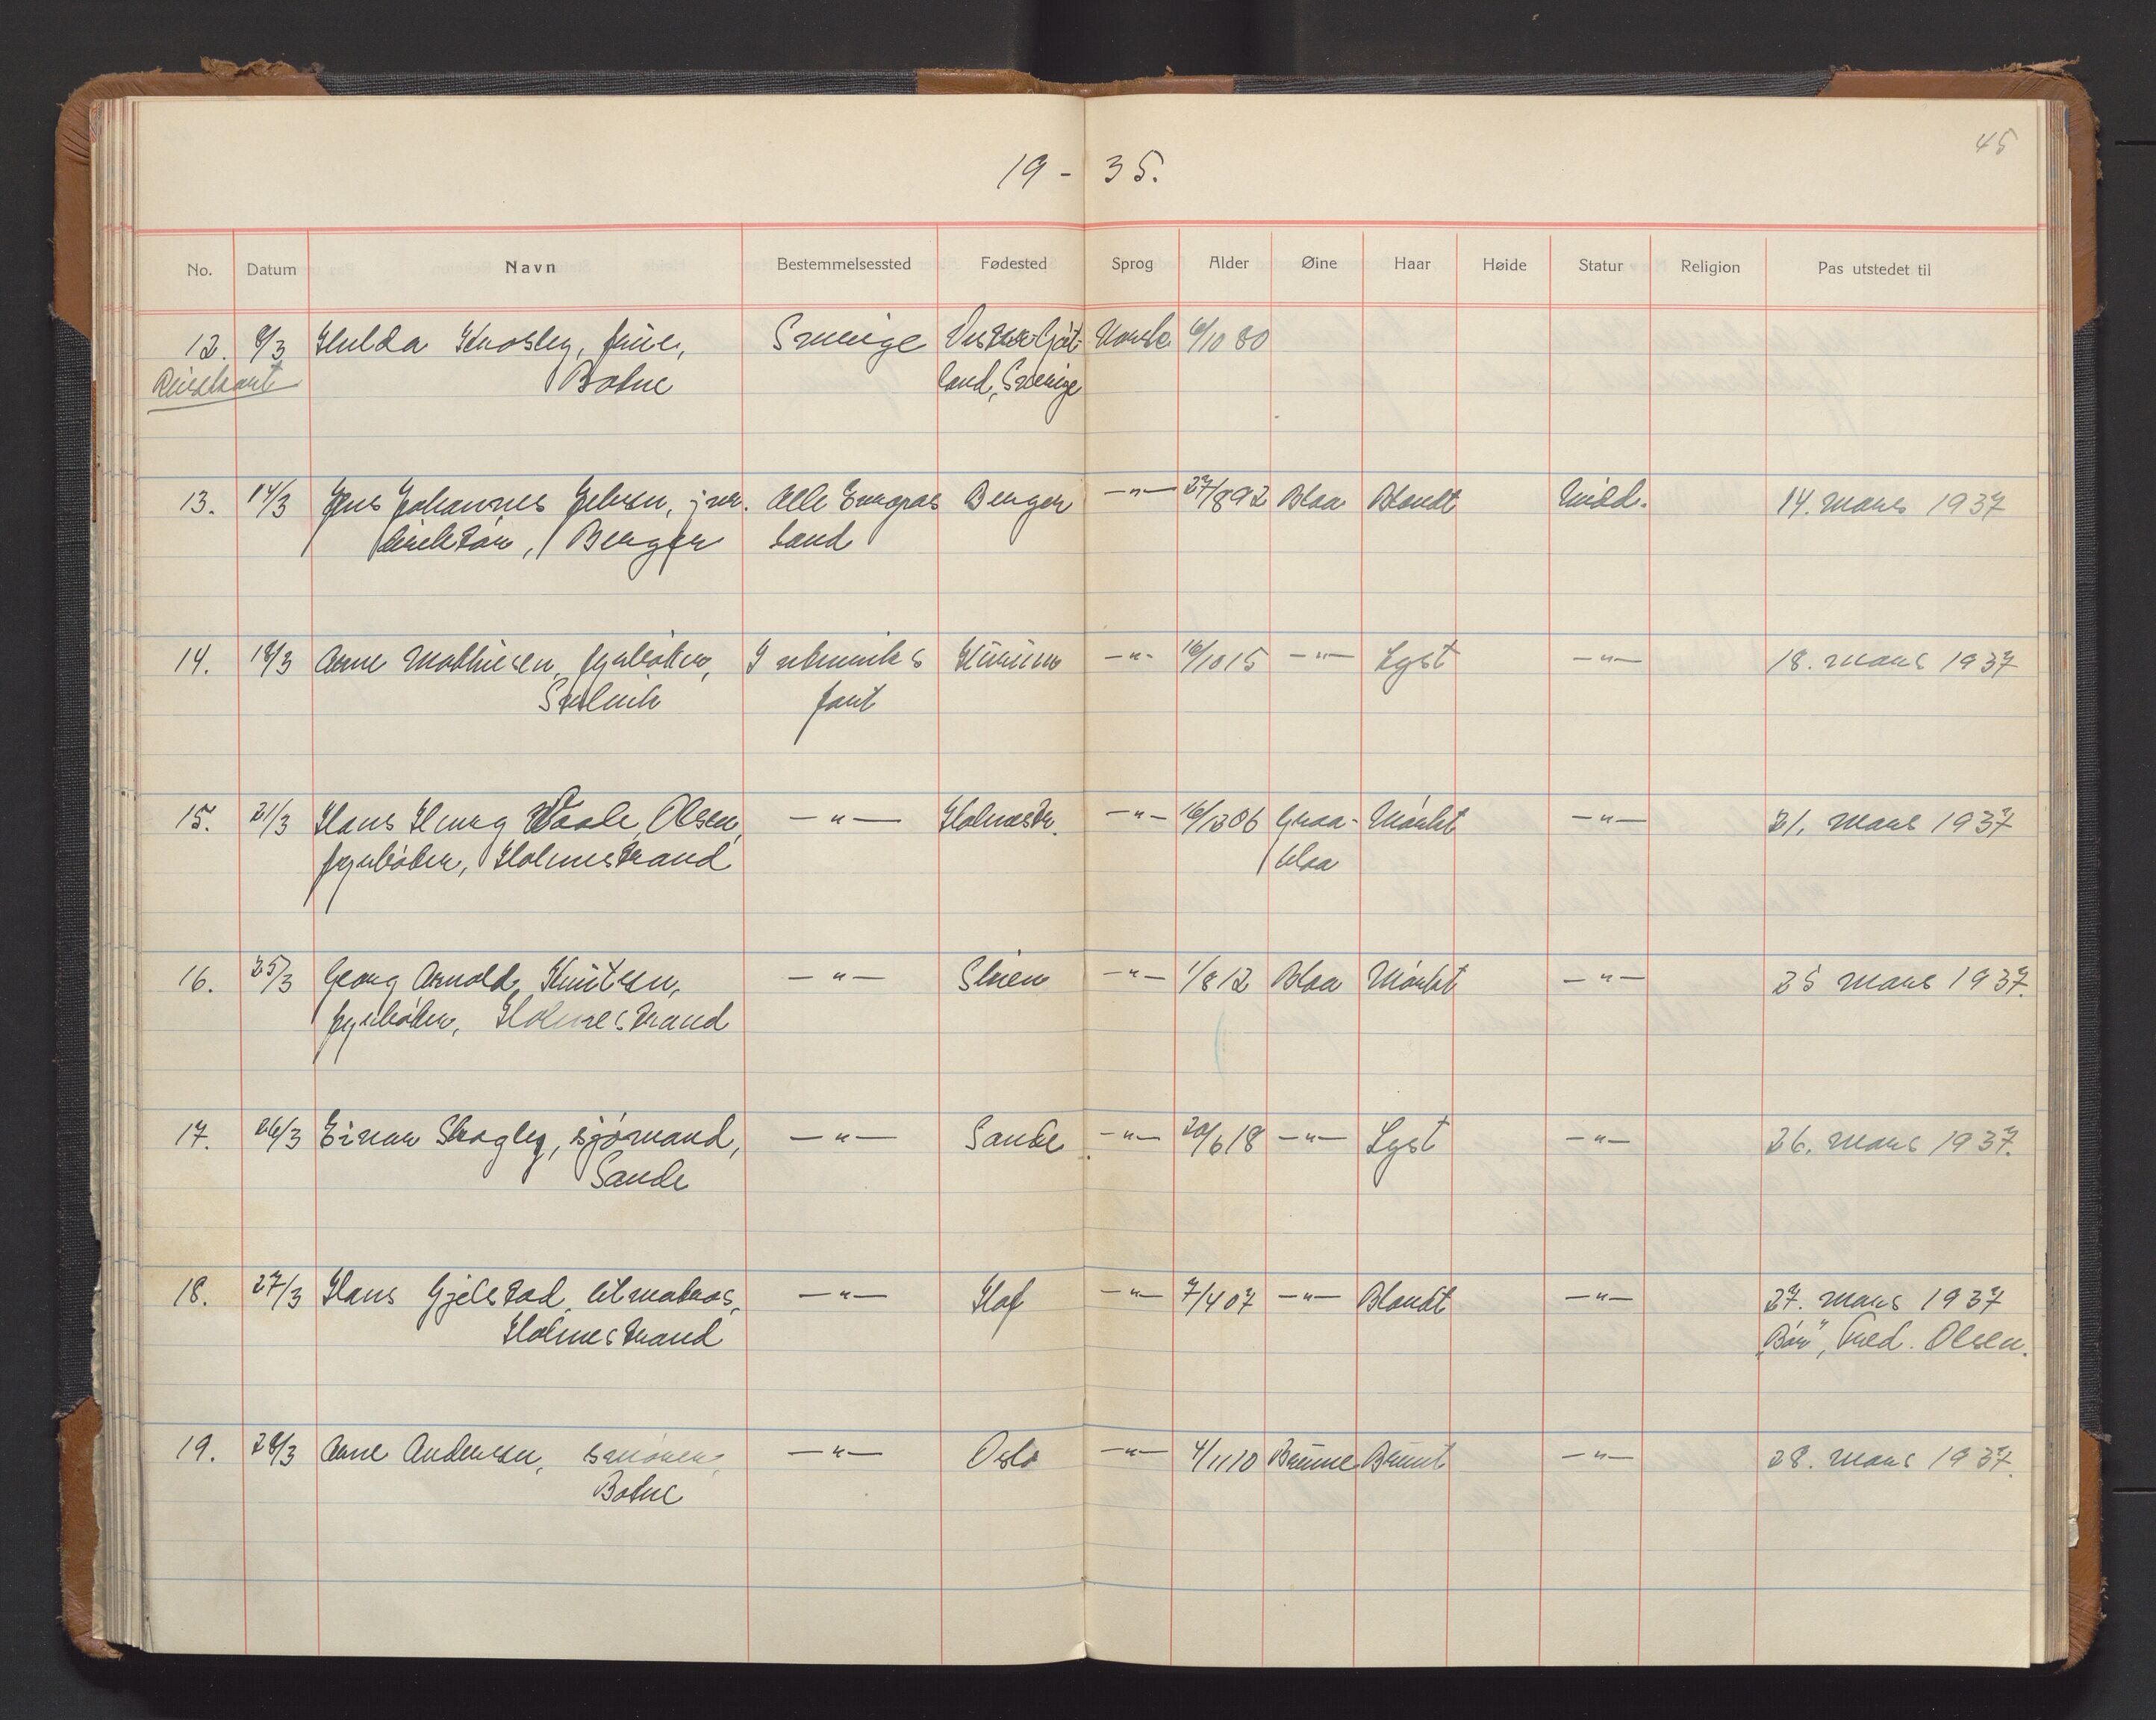 45
19 - 35.
No. Datum Navn Bestemmelsessted Fødested Sprog Alder Øine Haar Høide Statur Religion Pas utstedet til
12. 8/3 Hulda Krosby, frue, Sverige Vester-Göt- Norsk 6/10 80
Reisekort Botne land, Sverige
13. 14/3 Jens Johannes Jebsen, jnr. Alle Europas Berger —"— 27/8 92 Blaa Blondt Midd. 14. mars 1937
direktör, Berger land
14. 18/3 Arne Mathiesen, fyrböter, I utenriks Hurum —"— 16/10 15 —"— Lyst —"— 18. mars 1937
Selvik fart
15. 21/3 Hans Henry Waale Olsen, —"— Holmestr. —"— 16/12 06 Graa- Mörkt —"— 21. mars 1937
fyrböter, Holmestrand blaa
16. 25/3 Georg Arnold Knutsen, —"— Skien —"— 1/8 12 Blaa Mörkt —"— 25 mars 1937.
fyrböter, Holmestrand
17. 26/3 Einar Skogly, sjømand, —"— Sande —"— 20/6 18 —"— Lyst —"— 26. mars 1937.
Sande
18. 27/3 Hans Gjelstad, letmatros, —"— Hof —"— 7/4 07 —"— Blondt —"— 27. mars 1937
Holmestrand Fred. Olsen.
19. 28/3 Arne Andersen, —"— Oslo —"— 4/11 10 Brune Brunt —"— 28. mars 1937.
Botne